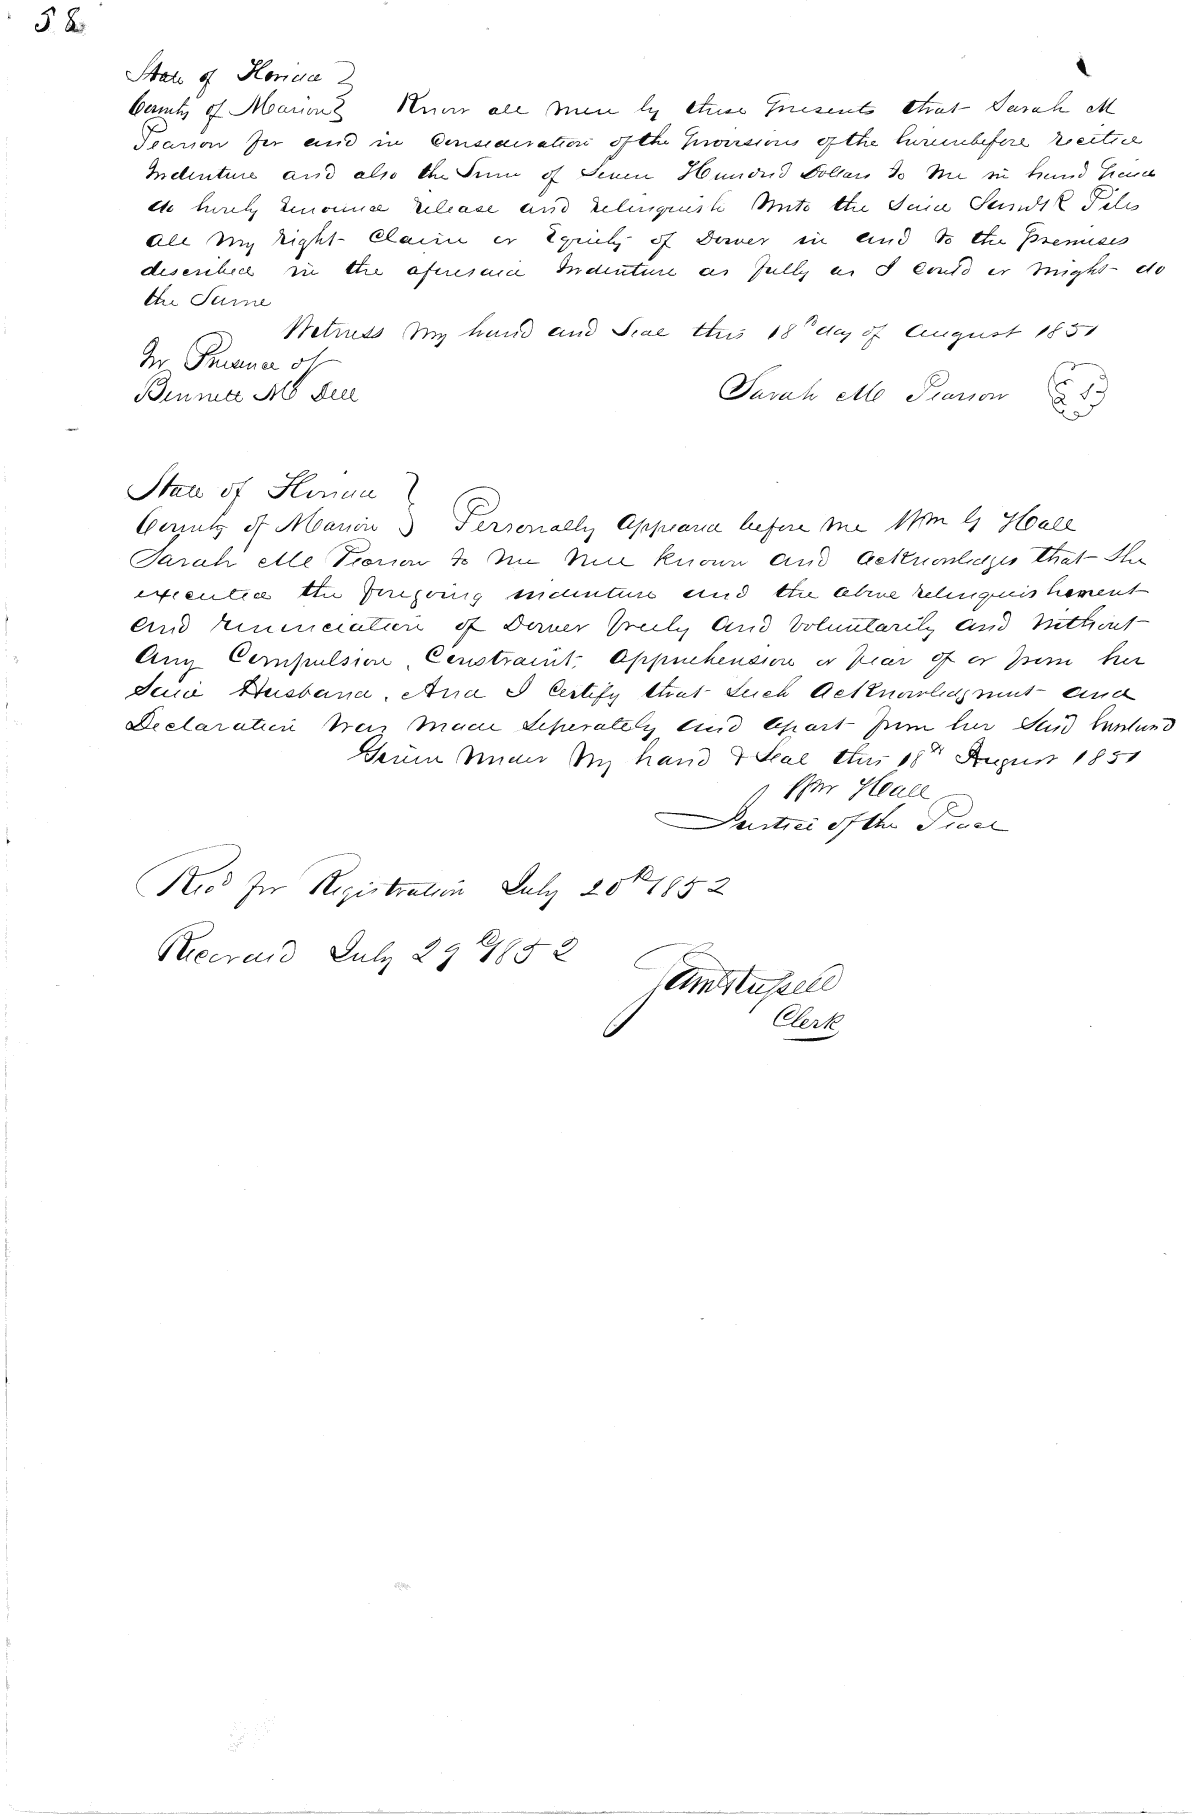 58
State of Florida
County of Marion Know all men by these Presents that Sarah M
Pearson for and in Consideration of the Provisions of the hereinbefore recited
Indenture and also the Sum of Seven Hundred Dollars to me in hand Paid
do hereby renounce release and relinquish Unto the Said Samuel R Piles
all my right Claim or Equity of Dower in and to the Premises
described in the aforesaid Indenture as fully as I could or might do
the Same
Witness My hand and Seal this 18th day of August 1851
In Presence of
Bennett M Dell Sarah M Pearson LS
State of Florida
County of Marion Personally Appeared before me Wm G Hall
Sarah M Pearson to me well known and acknowledges that She
executed the foregoing indenture and the above relinquishement
and renunciation of Dower freely and Voluntarily and Without
Any Compulsion, Constraint, apprehension or fear of or from her
Said Husband. And I Certify that Such Acknowledgment and
Declaration was made Seperately and apart from her Said husband
Given Under My hand & Seal this 18th August 1851
Wm Hall
Justice of the Peace
Recd for Registration July 20th 1852
Record July 29th 1852
Russell
Clerk